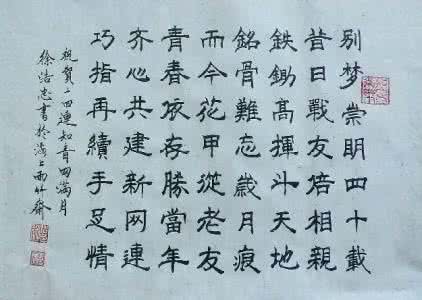 别梦崇明四十載
昔日戰友倍相親
鉄鋤高揮斗天地
銘骨難忘歲月痕
而今花甲從老友
青春依存勝當年
齐心共建新网連
巧指再續手足情
祝賀二四連知青网滿月
徐浩忠書於海上雨竹齋